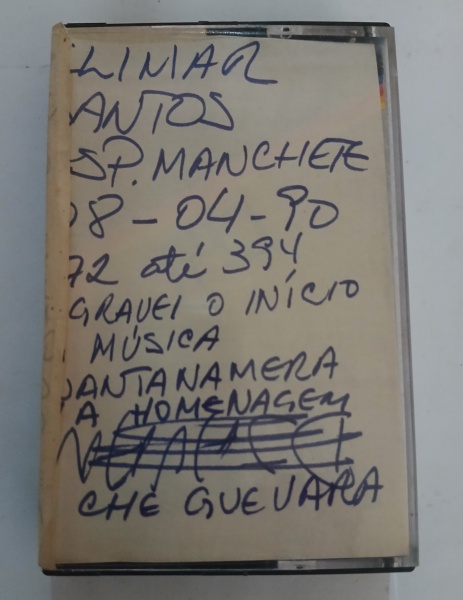 LIMAR
ANTOS
SP. MANCHETE
08-04-90
72 até 394
GRAVEI O INÍCIO
MÚSICA
ANTANAMERA
A HOMENAGEM
CHE GUEVARA